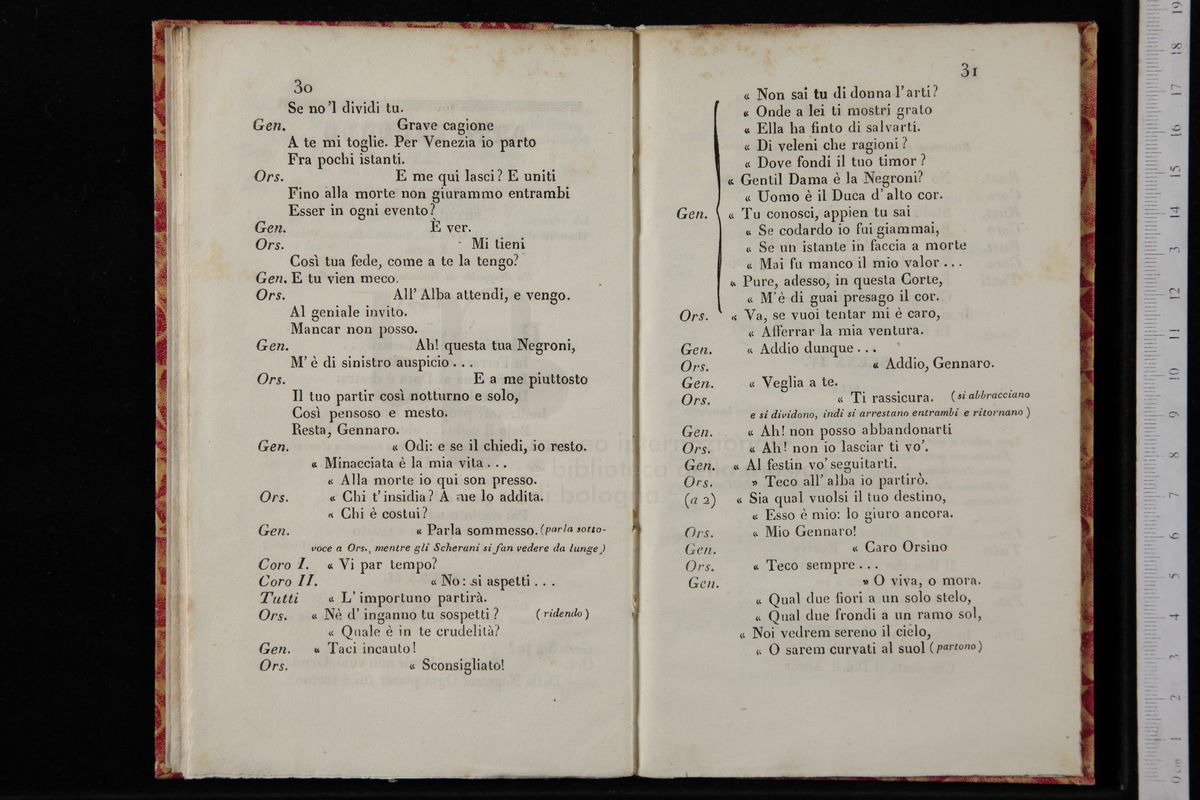 30
Se no'l dividi tu.
Gen. Grave cagione
A te mi toglie. Per Venezia io parto
Fra pochi istanti.
Ors. E me qui lasci? E uniti
Fino alla morte non giurammo entrambi
Esser in ogni evento?
Gen. È ver.
Ors. Mi tieni
Così tua fede, come a te la tengo?
Gen. E tu vien meco.
Ors. All' Alba attendi, e vengo.
Al geniale invito.
Mancar non posso.
Gen. Ah! questa tua Negroni,
M' è di sinistro auspicio...
Ors. E a me piuttosto
Il tuo partir così notturno e solo,
Così pensoso e mesto.
Resta, Gennaro.
Gen. « Odi: e se il chiedi, io resto.
« Minacciata è la mia vita...
« Alla morte io qui son presso.
Ors. « Chi t'insidia? A me lo addita.
« Chi è costui?
Gen. « Parla sommesso. (parla sotto-
voce a Ors., mentre gli Scherani si fan vedere da lunge)
Coro I. « Vi par tempo?
Coro II. « No: si aspetti...
Tutti « L' importuno partirà.
Ors. « Nè d' inganno tu sospetti? (ridendo)
« Quale è in te crudelità?
Gen. « Taci incauto!
Ors. « Sconsigliato!
31
« Non sai tu di donna l'arti?
« Onde a lei ti mostri grato
« Ella ha finto di salvarti.
« Di veleni che ragioni?
« Dove fondi il tuo timor?
« Gentil Dama è la Negroni?
« Uomo è il Duca d'alto cor.
Gen. « Tu conosci, appien tu sai
« Se codardo io fui giammai,
« Se un istante in faccia a morte
« Mai fu manco il mio valor...
« Pure, adesso, in questa Corte,
« M'è di guai presago il cor.
Ors. « Va, se vuoi tentar mi è caro,
« Afferrar la mia ventura.
Gen. « Addio dunque...
Ors. « Addio, Gennaro.
Gen. « Veglia a te.
Ors. « Ti rassicura. (si abbracciano
e si dividono, indi si arrestano entrambi e ritornano)
Gen. « Ah! non posso abbandonarti
Ors. « Ah! non io lasciar ti vo'.
Gen. « Al festin vo' seguitarti.
Ors. » Teco all' alba io partirò.
(a 2) « Sia qual vuolsi il tuo destino,
« Esso è mio: lo giuro ancora.
Ors. « Mio Gennaro!
Gen. « Caro Orsino
Ors. « Teco sempre...
Gen. » O viva, o mora.
« Qual due fiori a un solo stelo,
« Qual due frondi a un ramo sol,
« Noi vedrem sereno il cielo,
« O sarem curvati al suol (partono)